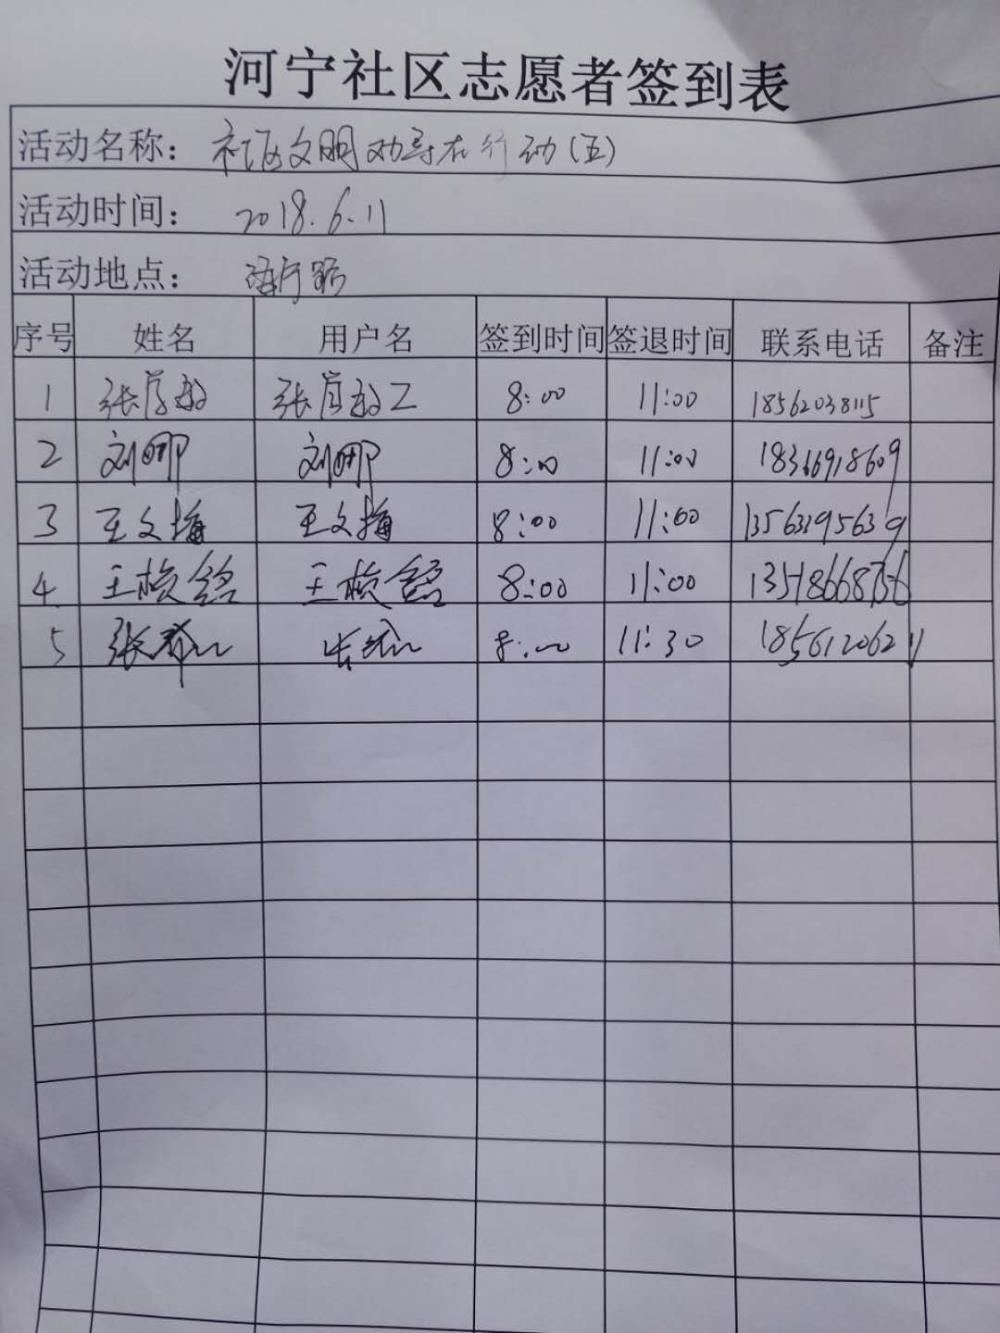 河宁社区志愿者签到表
活动名称： 社区文明劝导在行动(五)
活动时间： 2018.6.11
活动地点： 路
序号 姓名 用户名 签到时间 签退时间 联系电话 备注
1 张 张 8:00 11:00 18562038115
2 刘娜 刘娜 8:00 11:00 18366918609
3 王文梅 王文梅 8:00 11:00 13563195639
4 王 王 8:00 11:00
5 张 8:00 11:30